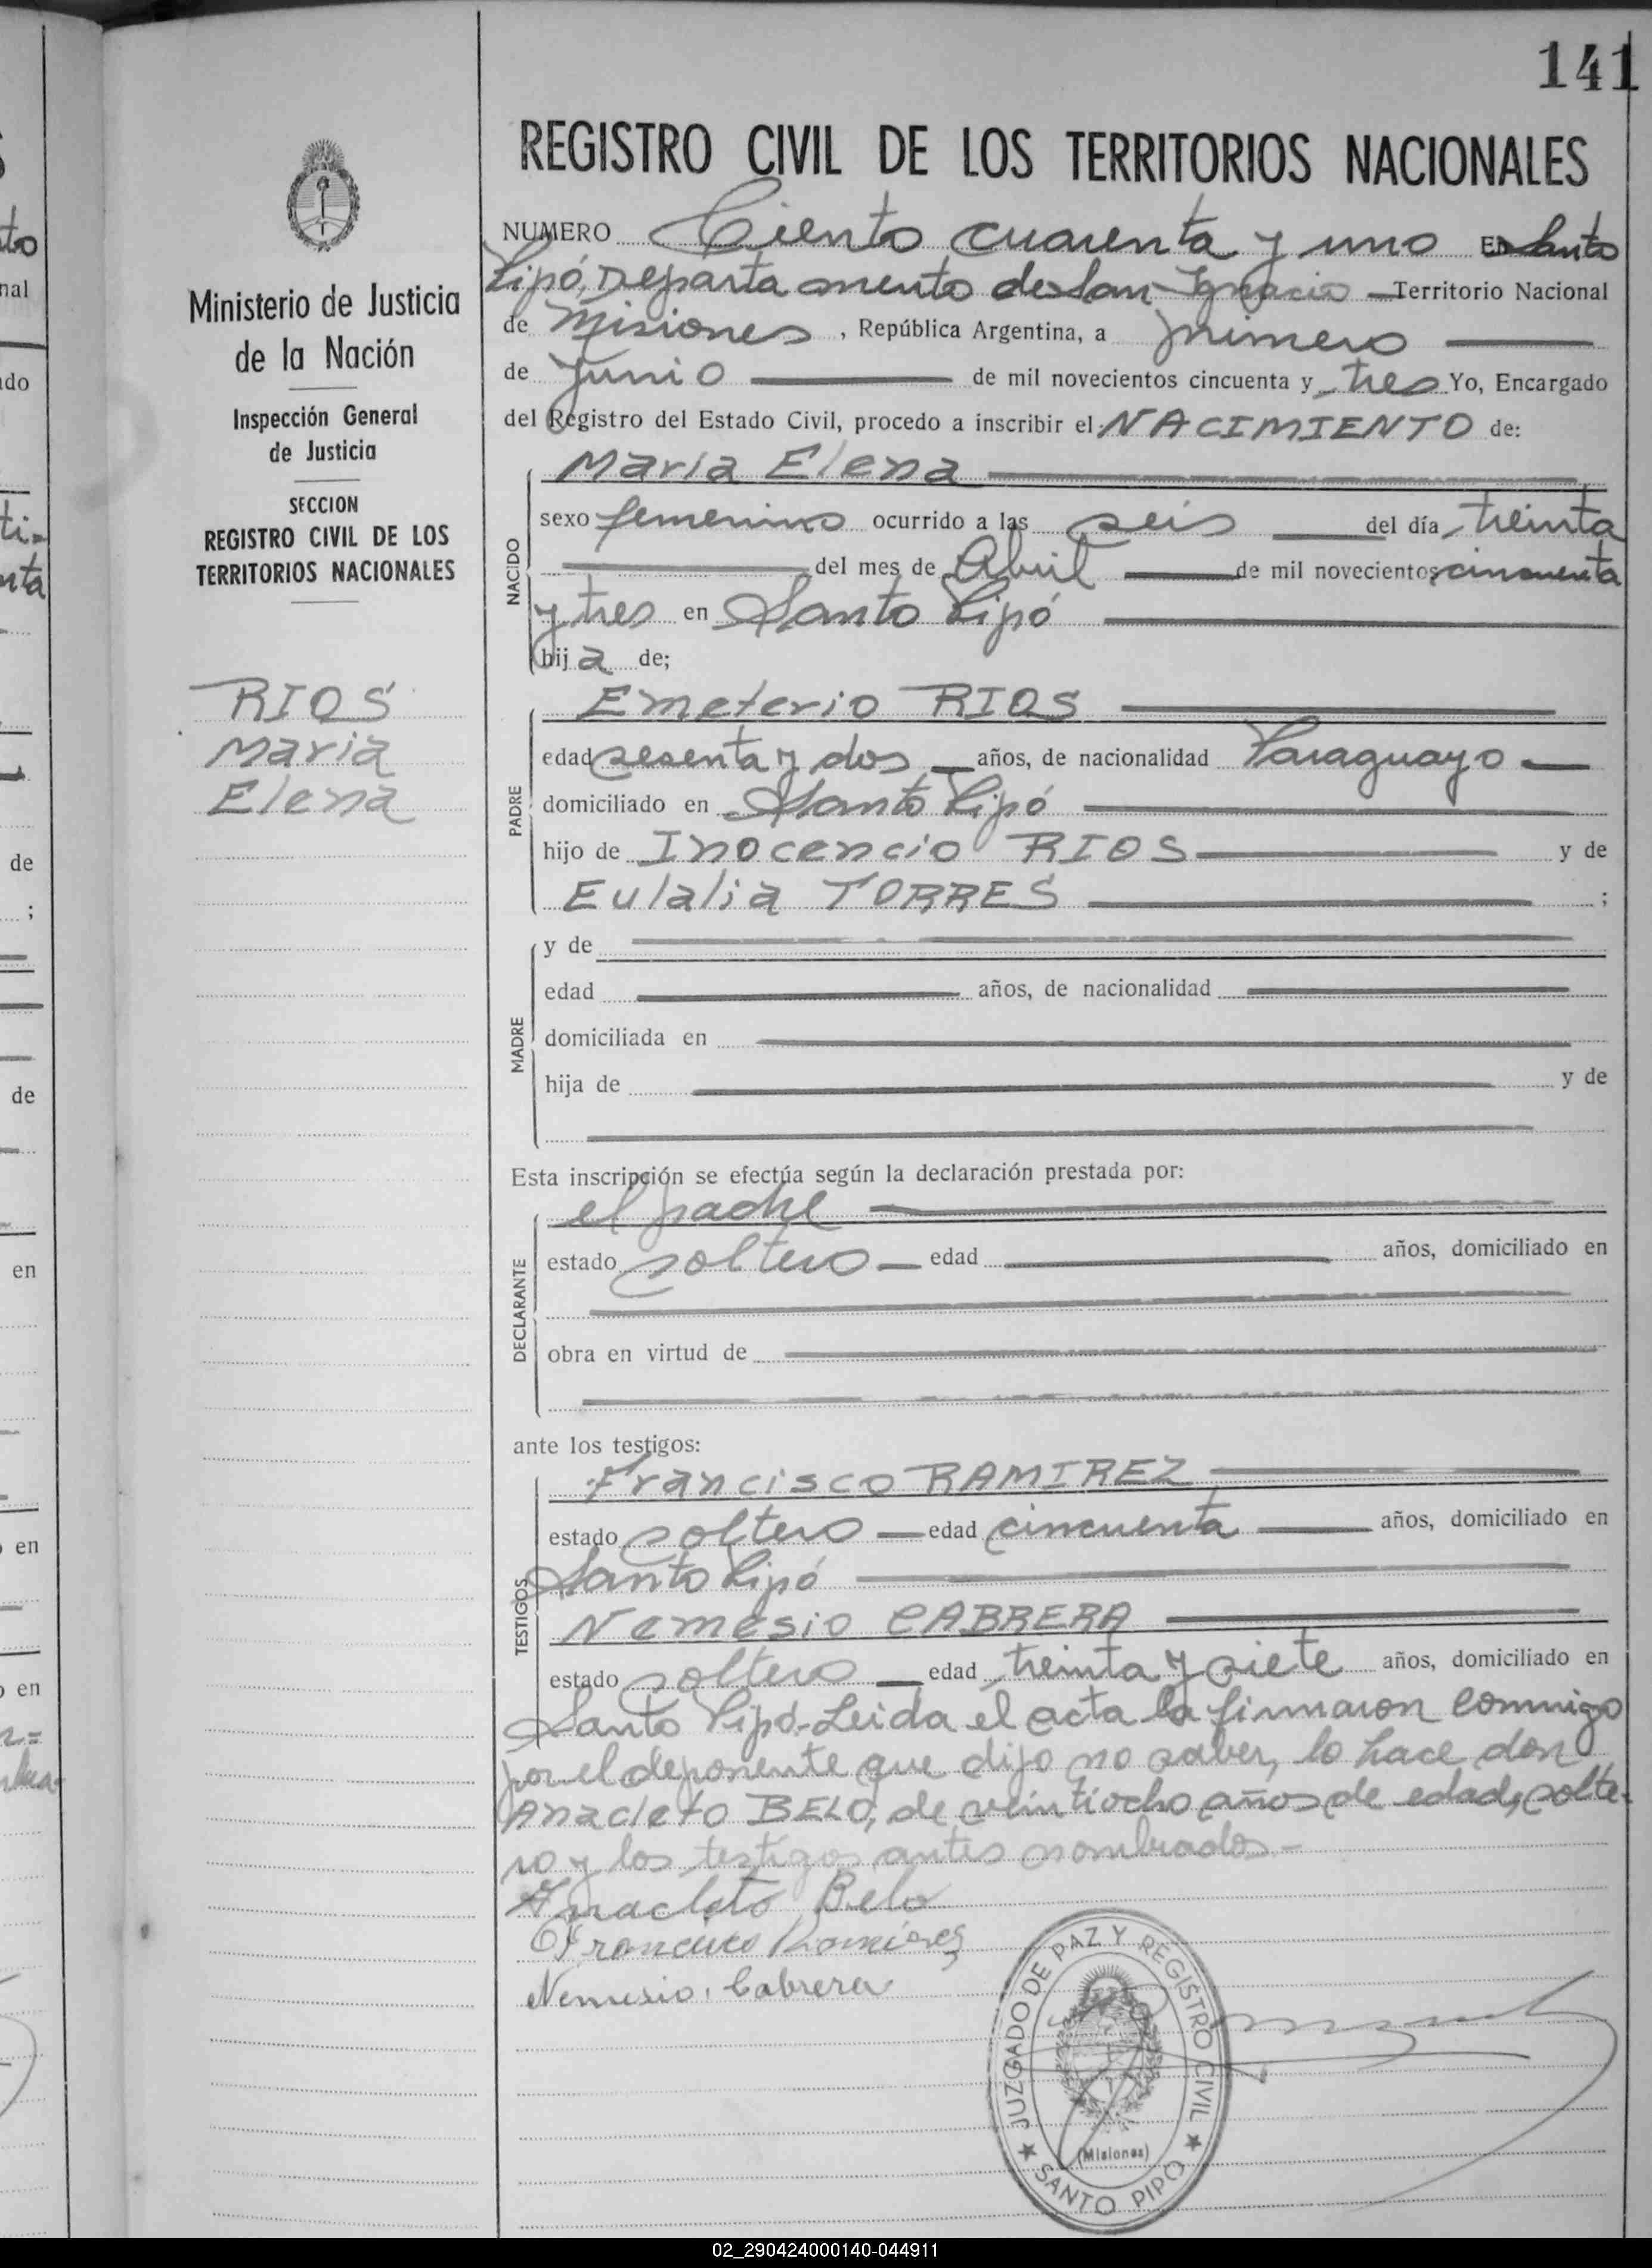 141
REGISTRO CIVIL DE LOS TERRITORIOS NACIONALES
NUMERO Ciento cuarenta y uno En Santo
Pipó, Departamento de San Ignacio Territorio Nacional
de Misiones, República Argentina, a primero
de Junio de mil novecientos cincuenta y tres Yo, Encargado
del Registro del Estado Civil, procedo a inscribir el NACIMIENTO de:
Maria Elena
sexo femenino ocurrido a las seis del día treinta
del mes de Abril de mil novecientos cincuenta
y tres en Santo Pipó
hija de;
NACIDO
Emeterio RIOS
edad sesenta y dos años, de nacionalidad Paraguayo
domiciliado en Santo Pipó
hijo de Inocencio RIOS y de
Eulalia TORRES ;
PADRE
y de
edad años, de nacionalidad
domiciliada en
hija de y de
MADRE
Esta inscripción se efectúa según la declaración prestada por:
el padre
estado soltero edad años, domiciliado en
obra en virtud de
DECLARANTE
ante los testigos:
Francisco RAMIREZ
estado soltero edad cincuenta años, domiciliado en
Santo Pipó
Nemesio CABRERA
estado soltero edad treinta y siete años, domiciliado en
TESTIGOS
Santo Pipó.-Leida el acta la firmaron conmigo
por el deponente que dijo no saber, lo hace don
Anacleto BELO, de veintiocho años de edad, solte-
ro y los testigos antes nombrados.-
Anacleto Belo
Francisco Ramires
Nemesio. Cabrera
JUZGADO DE PAZ Y REGISTRO CIVIL
(Misiones)
★ SANTO PIPO ★
Ministerio de Justicia
de la Nación
Inspección General
de Justicia
SECCION
REGISTRO CIVIL DE LOS
TERRITORIOS NACIONALES
RIOS
Maria
Elena
02_290424000140-044911